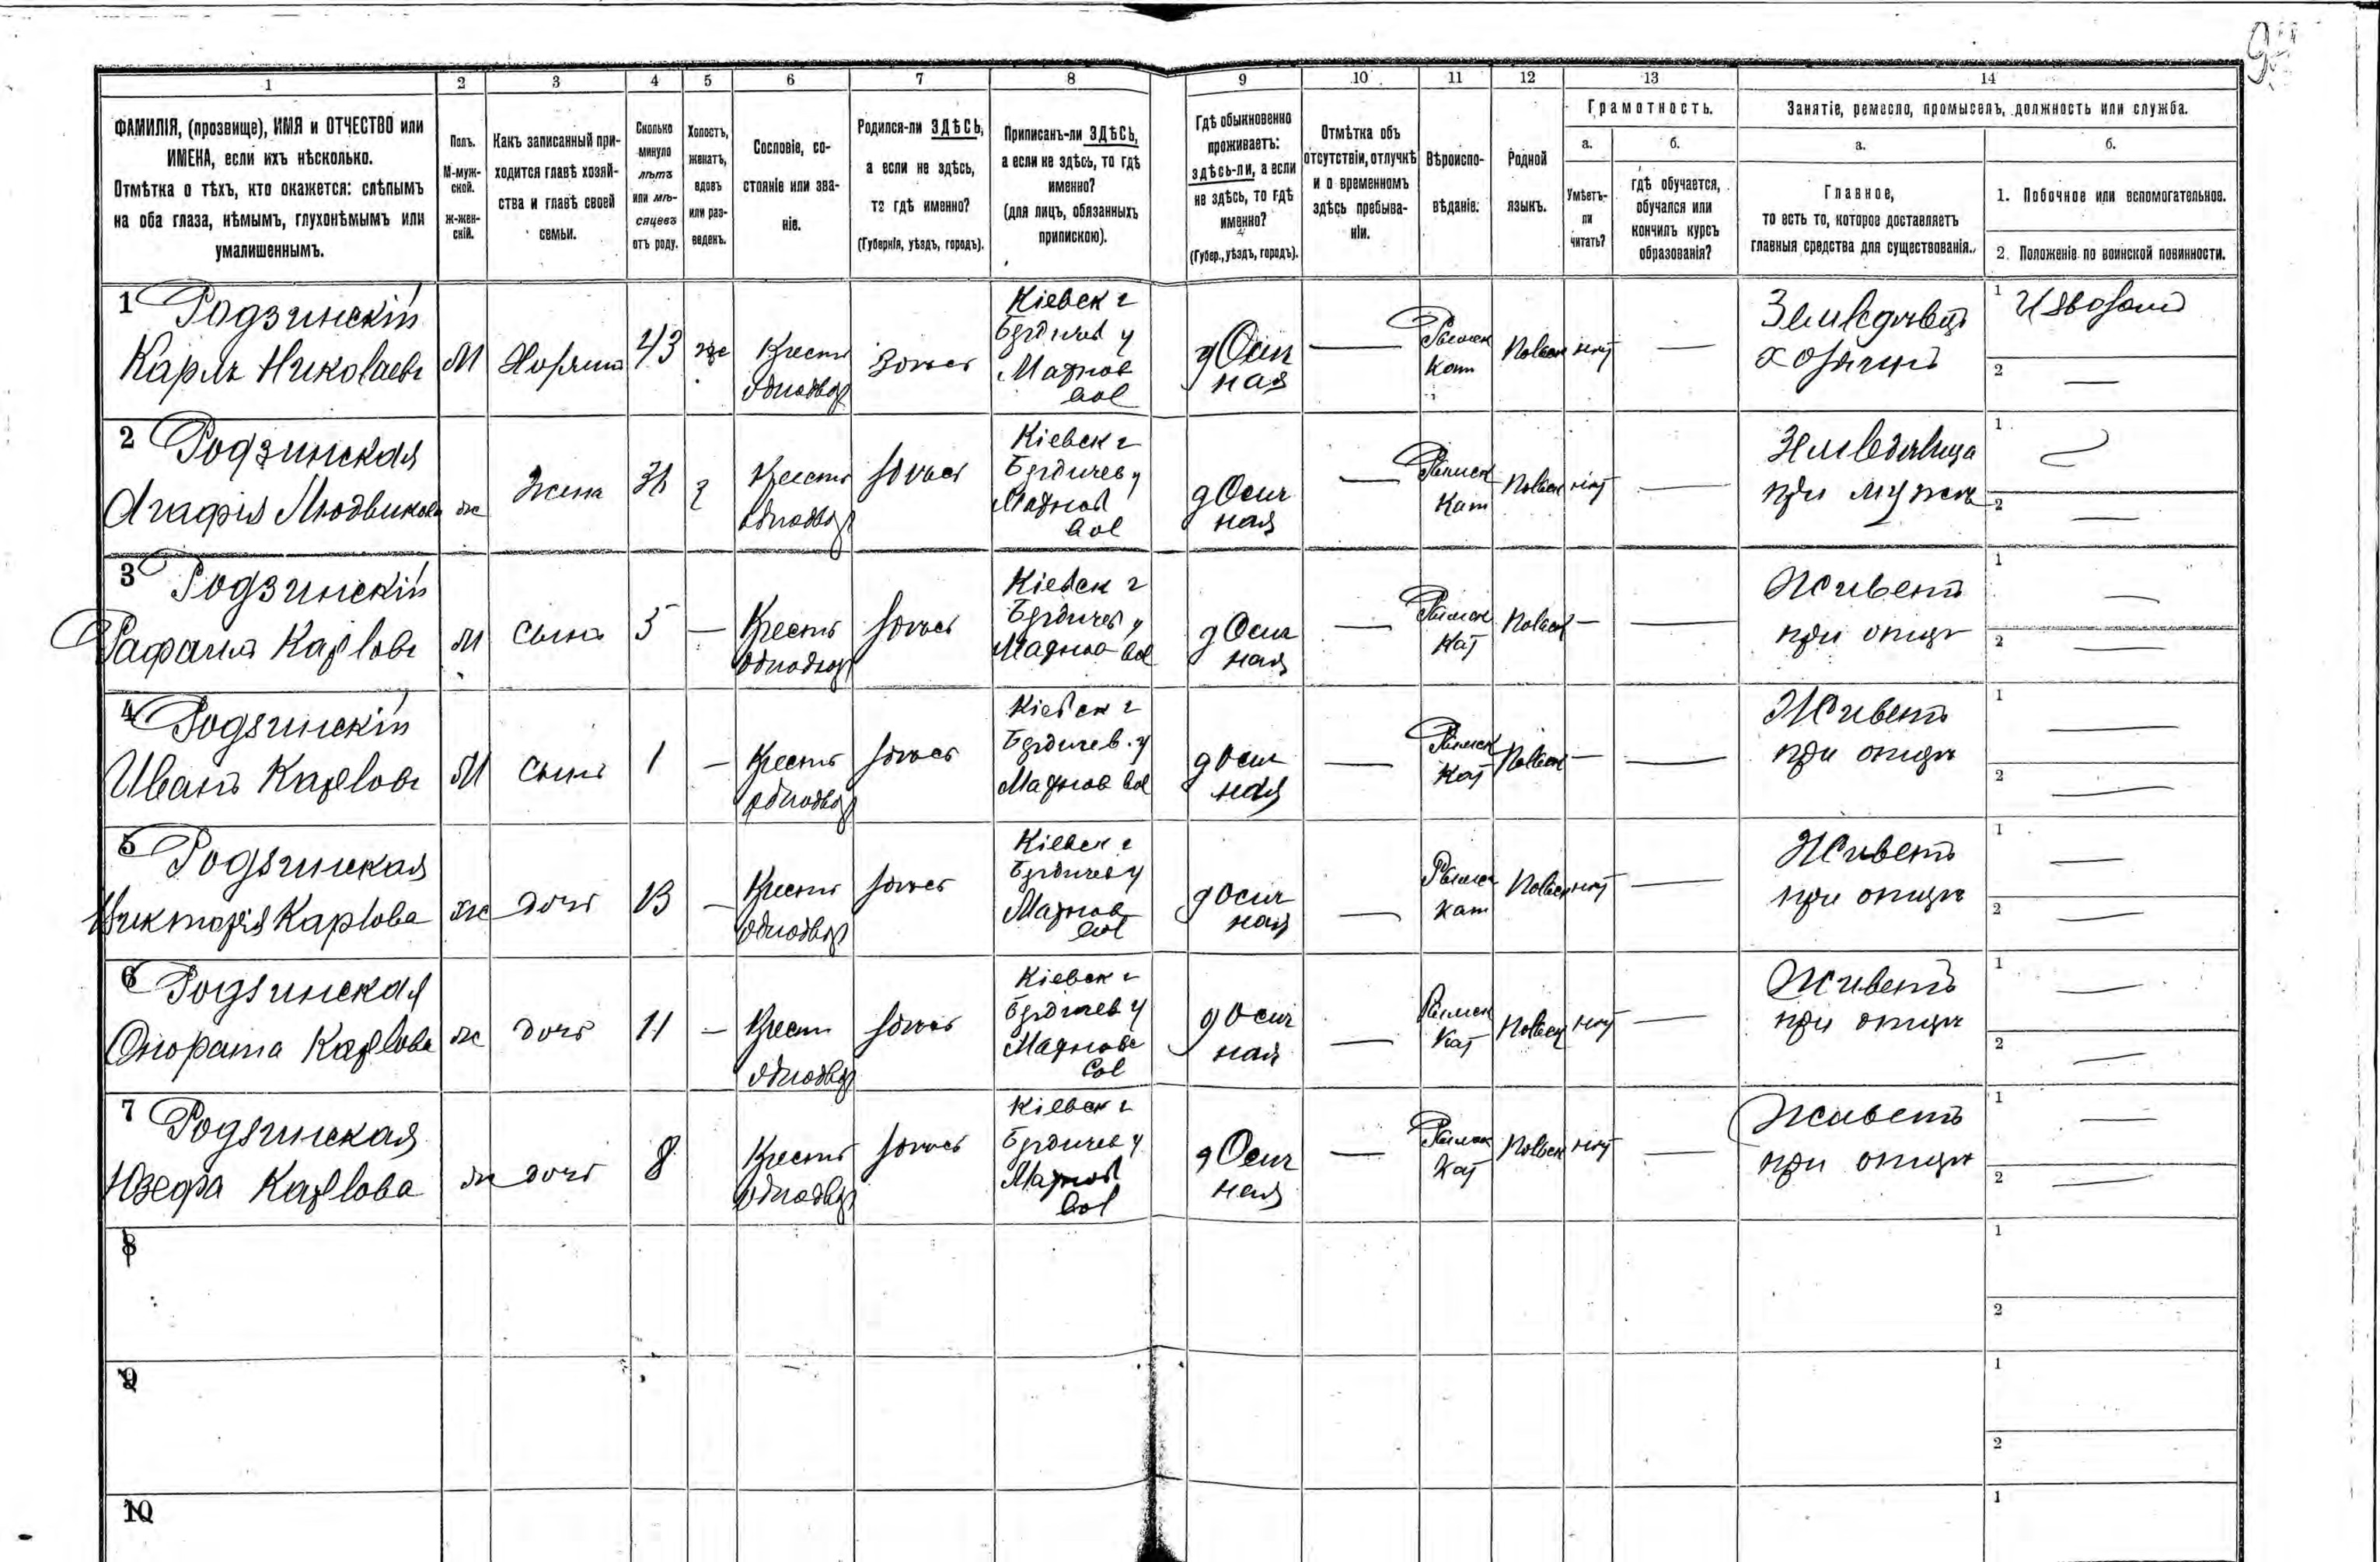 1 2 3 4 5 6 7 8 9 10 11 12 13 14
ФАМИЛІЯ, (прозвище), ИМЯ и ОТЧЕСТВО или
ИМЕНА, если ихъ нѣсколько.
Отмѣтка о тѣхъ, кто окажется: слѣпымъ
на оба глаза, нѣмымъ, глухонѣмымъ или
умалишеннымъ.
Полъ.
М-муж-
ской.
ж-жен-
скій.
Какъ записанный при-
ходится главѣ хозяй-
ства и главѣ своей
семьи.
Сколько
минуло
лѣтъ
или мѣ-
сяцевъ
отъ роду.
Холостъ,
женатъ,
вдовъ
или раз-
веденъ.
Сословіе, со-
стояніе или зва-
ніе.
Родился-ли ЗДѢСЬ,
а если не здѣсь,
то гдѣ именно?
(Губернія, уѣздъ, городъ).
Приписанъ-ли ЗДѢСЬ,
а если не здѣсь, то гдѣ
именно?
(для лицъ, обязанныхъ
припискою).
Гдѣ обыкновенно
проживаетъ:
здѣсь-ли, а если
не здѣсь, то гдѣ
именно?
(Губер., уѣздъ, городъ).
Отмѣтка объ
отсутствіи, отлучкѣ
и о временномъ
здѣсь пребыва-
ніи.
Вѣроиспо-
вѣданіе.
Родной
языкъ.
Грамотность.
а.
Умѣетъ-
ли
читать?
б.
гдѣ обучается,
обучался или
кончилъ курсъ
образованія?
Занятіе, ремесло, промыселъ, должность или служба.
а.
Главное,
то есть то, которое доставляетъ
главныя средства для существованія.
б.
1. Побочное или вспомогательное.
2. Положеніе по воинской повинности.
1 Родзинскій
Карлъ Николаевъ
М
Хозяинъ
43
же
Крестьян
однодвор
Кіевск г
Бердичев у
Махнов
вол
Римск
Кат
Польск
нѣт
Земледѣлец
хозяинъ
1 Извозом
2
2 Родзинская
Агафія Людвикова
же
Жена
Крестьян
однодвор
здѣсь
Кіевск г
Бердичев у
Махнов
вол
Римск
Кат
Польск
нѣт
при мужѣ
1
2
3 Родзинскій
Рафаил Карлов
М
Сынъ
5
Крестьян
однодвор
здѣсь
Кіевск г
Бердичев у
Махнов вол
Римск
Кат
Польск
Живетъ
при отцѣ
1
2
4 Родзинскій
Иванъ Карлов
М
Сынъ
1
Крестьян
однодвор
здѣсь
Кіевск г
Бердичев у
Махнов вол
Римск
Кат
Польск
Живетъ
при отцѣ
1
2
5 Родзинская
Виктория Карлова
же
дочь
13
Крестьян
однодвор
здѣсь
Кіевск г
Бердичев у
Махнов
вол
Римск
Кат
Польск
нѣт
Живетъ
при отцѣ
1
2
6 Родзинская
Онората Карлова
же
дочь
11
Крестьян
однодвор
здѣсь
Кіевск г
Бердичев у
Махнов
вол
Римск
Кат
Польск
нѣт
Живетъ
при отцѣ
1
2
7 Родзинская
Юзефа Карлова
же
дочь
8
Крестьян
однодвор
здѣсь
Кіевск г
Бердичев у
Махнов
вол
Римск
Кат
Польск
нѣт
Живетъ
при отцѣ
1
2
8
1
2
9
1
2
10
1